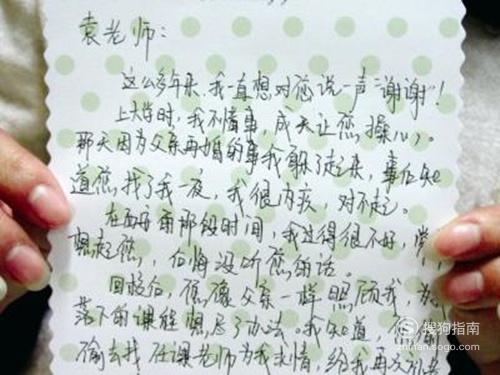 袁老师：
这么多年来，我一直想对您说一声“谢谢”！
上大学时，我不懂事，成天让您操心。
那天因为父亲再婚的事我躲了起来，事后知
道您找了我一夜，我很内疚，对不起。
在西雨那段时间，我过得很不好，常
想起您，后悔没听您的话。
回校后，您像父亲一样照顾我，为
落下的课程想尽了办法。我知道，您
偷去找任课老师为我求情，给我再交
搜狗指南
zhinan.sogou.com